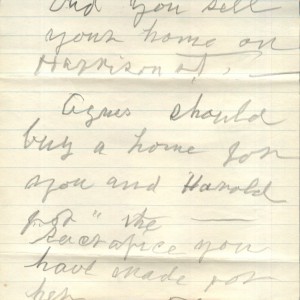 Did you sell
your home on
Harrison st, —
Agnes should
buy a home for
you and Harold
for " the ——
Sacrafice you
have made for
her